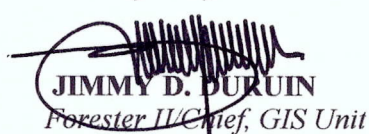 JIMMY D. DURUIN
Forester II/Chief, GIS Unit